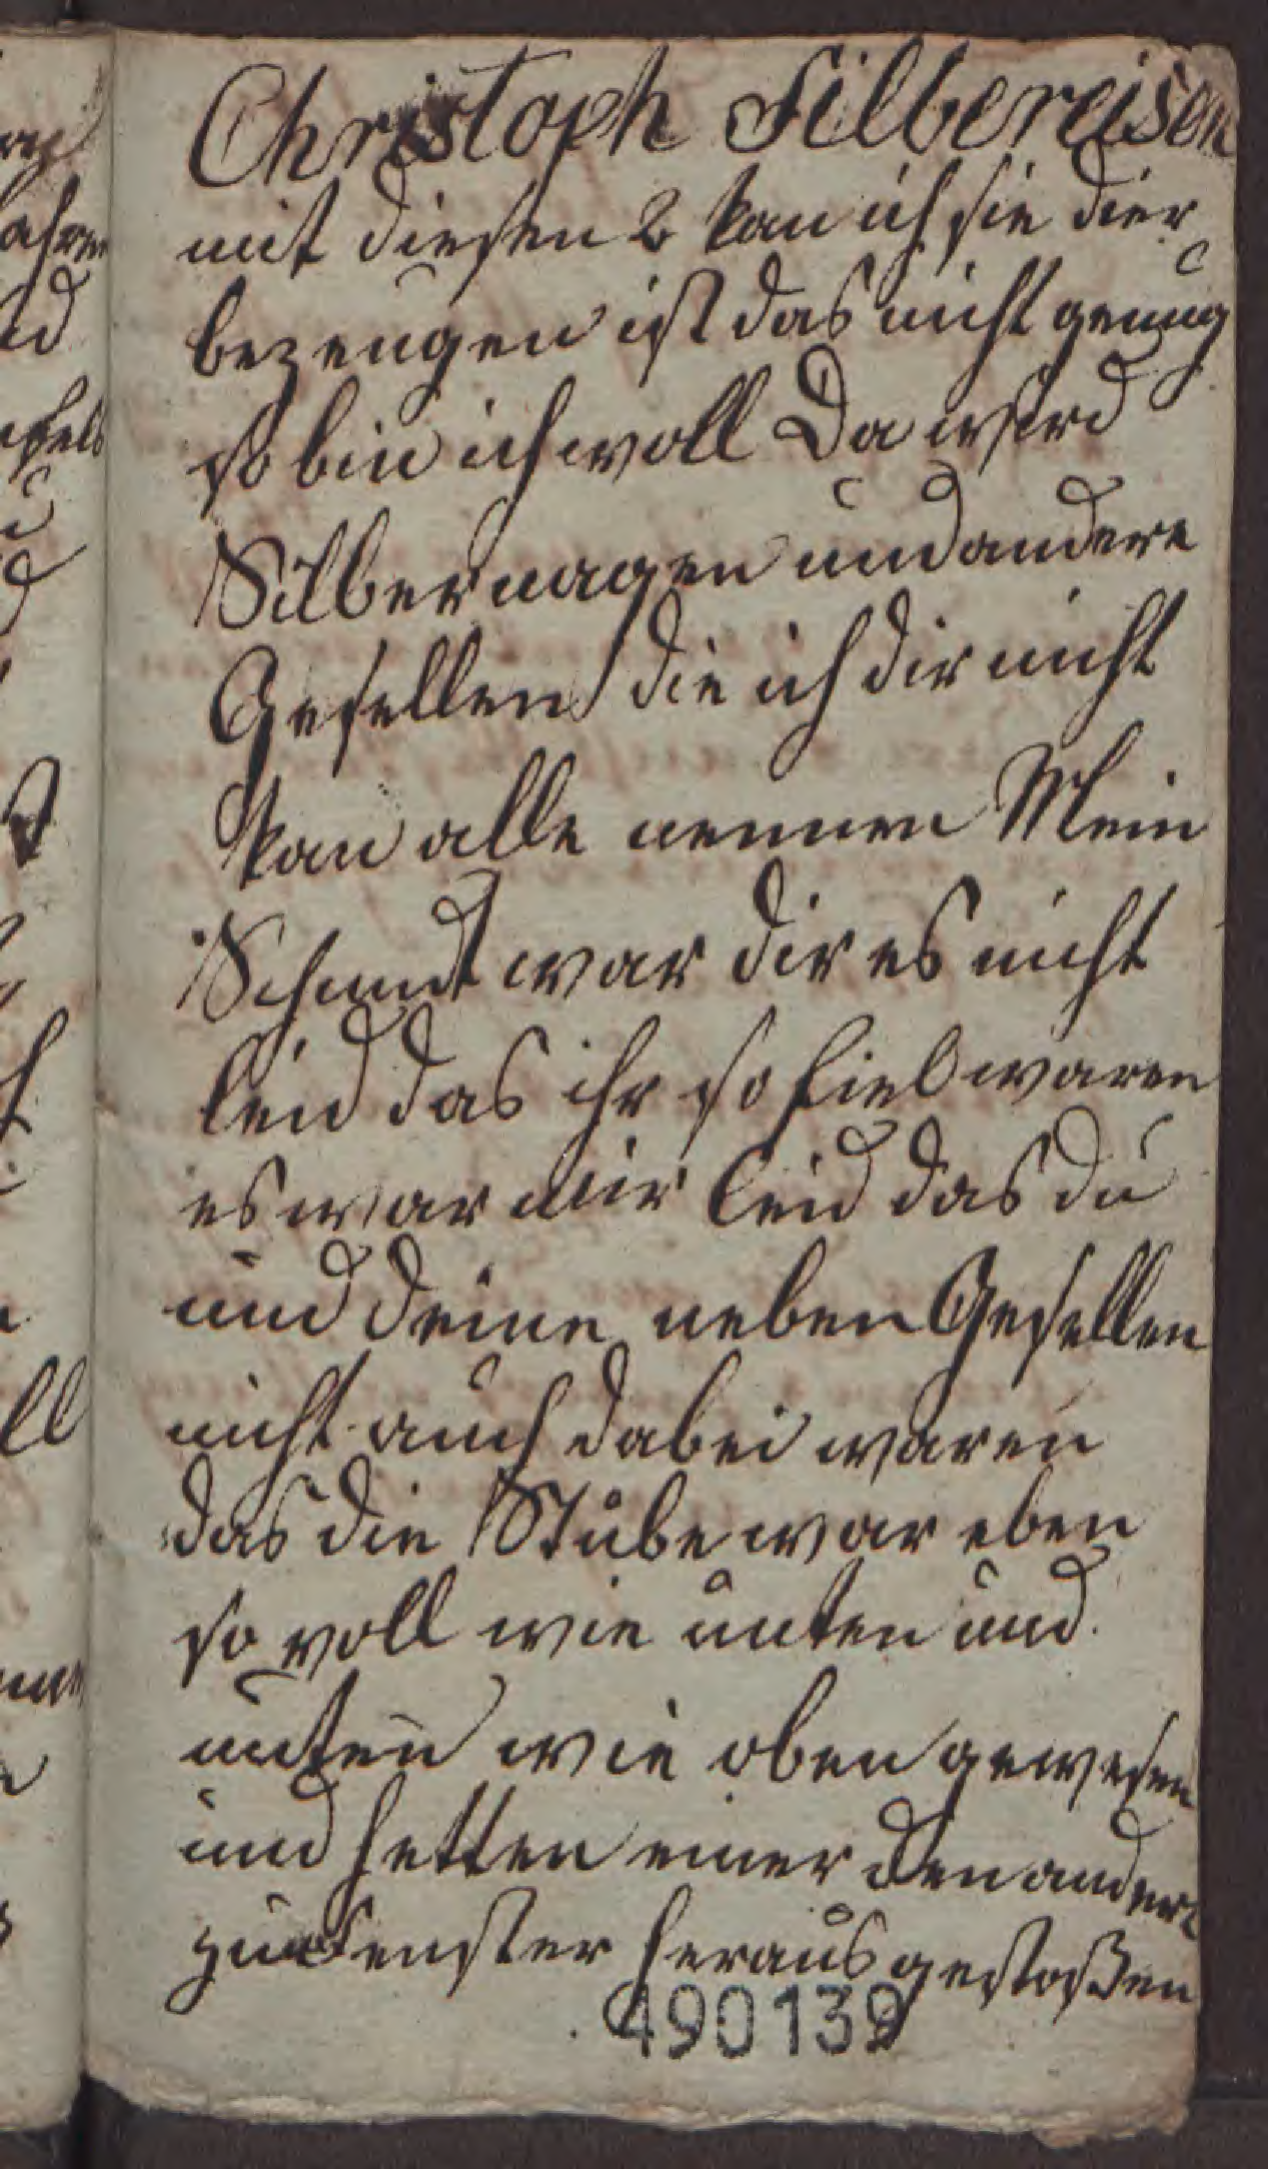 Christoph Silbereisen
mit diesen 2 kan ich sie dier
bezeugen ist das nicht genug
so bin ich woll Da wird
Silbernagen und andere
Gesellen die ich dir nicht
kan alle nennen Mein
Schmidt war dir es nicht
leid das ihr so fiel waren
es war mir leid das du
und deine neben Gesellen
nicht auch dabei waren
das die Stube war eben
so voll wie unten und
unten wie oben gewesen
und hetten einer den andern
zum Fenster heraus gestoßen
490139